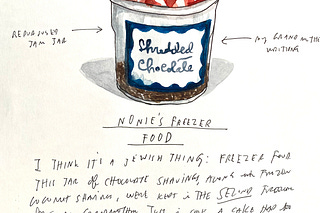 REPURPOSED
JAM JAR
MY GRANDMOTHER'S
WRITING
Shredded
Chocolate
NONIE'S FREEZER
FOOD
I THINK IT'S A JEWISH THING: FREEZER FOOD
THIS JAR OF CHOCOLATE SHAVINGS ALONG WITH FROZEN
COCONUT SHAVINGS, WERE KEPT IN THE SECOND FREEZER